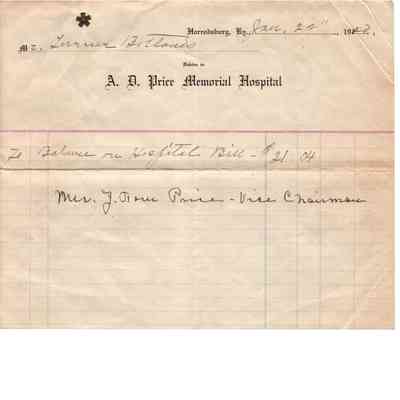 Harrodsburg, Ky., Jan. 20" 19
Mr. Turner
Debtor to
A. D. Price Memorial Hospital
To Balance on Hospital Bill - $21 04
Mrs. J. Price - Vice Chairman